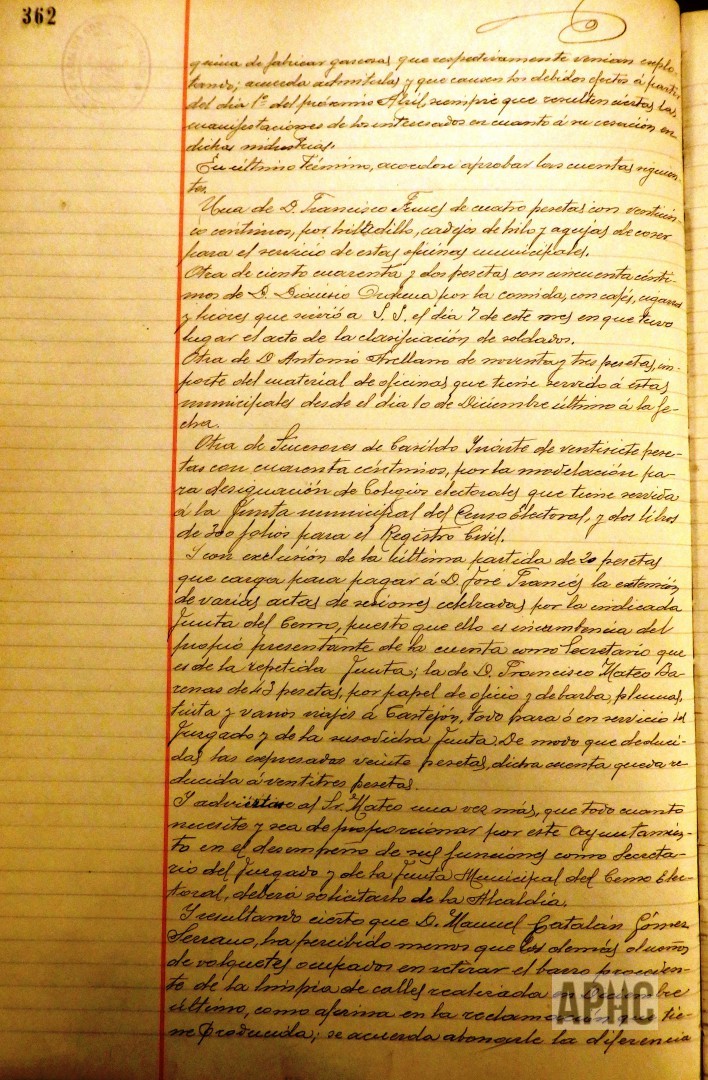 362
quina de fabricar gaseosas, que respectivamente venían explo-
tando; acuerda admitirlas y que causen los debidos efectos á partir
del dia 1º del próximo Abril, siempre que resulten ciertas las
manifestaciones de los interesados en cuanto á su cesación en
dichas industrias.
En último término, acordose aprobar las cuentas siguien-
tes.
Una de D. Francisco de cuatro pesetas con venticin-
co centimos, por hiladillo, cadejos de hilo y agujas de coser
para el servicio de estas oficinas municipales.
Otra de ciento cuarenta y dos pesetas con cincuenta cénti-
mos de D. Dionisio por la comida, con cafés, cigarros
y licores que sirvió á S. S. el dia 7 de este mes en que tuvo
lugar el acto de la clasificación de soldados.
Otra de D Antonio Arellano de noventa y tres pesetas, im-
porte del material de oficinas que tiene servido á estas
municipales desde el dia 10 de Diciembre último á la fe-
cha.
Otra de Sucesores de Casildo Iriarte de ventisiete pese-
tas con cuarenta céntimos, por la modelación pa-
ra designación de Colegios electorales que tiene servida
á la Junta municipal del Censo Electoral, y dos libros
de 300 folios para el Registro Civil.
Y con exclusión de la última partida de 20 pesetas
que carga para pagar á D. José Francés la extensión
de varias actas de sesiones celebradas por la indicada
Junta del Censo, puesto que ello es incumbencia del
propio presentante de la cuenta como Secretario que
es de la repetida Junta; la de D. Francisco Mateo Ba-
renas de 43 pesetas, por papel de oficio y de barba, plumas,
tinta y varios viajes á Castejón, todo para ó en servicio del
Juzgado y de la susodicha Junta. De modo que deduci-
das las expresadas veinte pesetas, dicha cuenta queda re-
ducida á ventitres pesetas.
Y adviértase al Sr. Mateo una vez más, que todo cuanto
necesite y sea de proporcionar por este Ayuntamien-
to en el desempeño de sus funciones como Secreta-
rio del Juzgado y de la Junta Municipal del Censo Elec-
toral, deberá solicitarlo de la Alcaldía.
Y resultando cierto que D. Manuel Catalán Gómez
Serrano, ha percibido menos que los demás dueños
de volquetes ocupados en retirar el barro proceden-
te de la limpia de calles realizada en Diciembre
último, como afirma en la reclamación que tie-
ne producida; se acuerda abonarle la diferencia
APHC